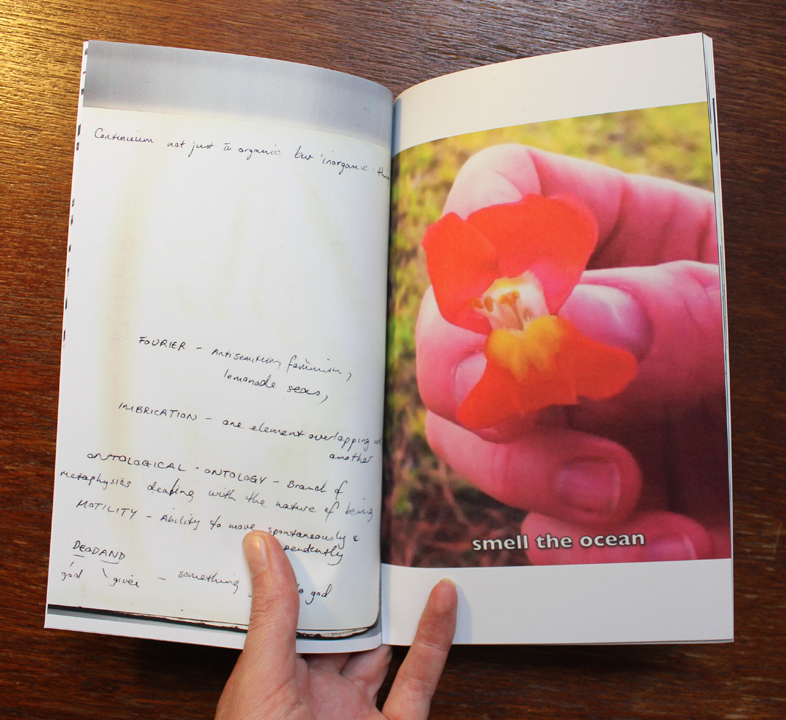 Continuum not just to organic but inorganic
FOURIER – Antisemitism, feminism,
lemonade seas,
IMBRICATION – one element overlapping
another
ONTOLOGICAL · ONTOLOGY – Branch of
metaphysics dealing with the nature of being
MOTILITY – Ability to move spontaneously &
DEODAND
god given – something to god
smell the ocean